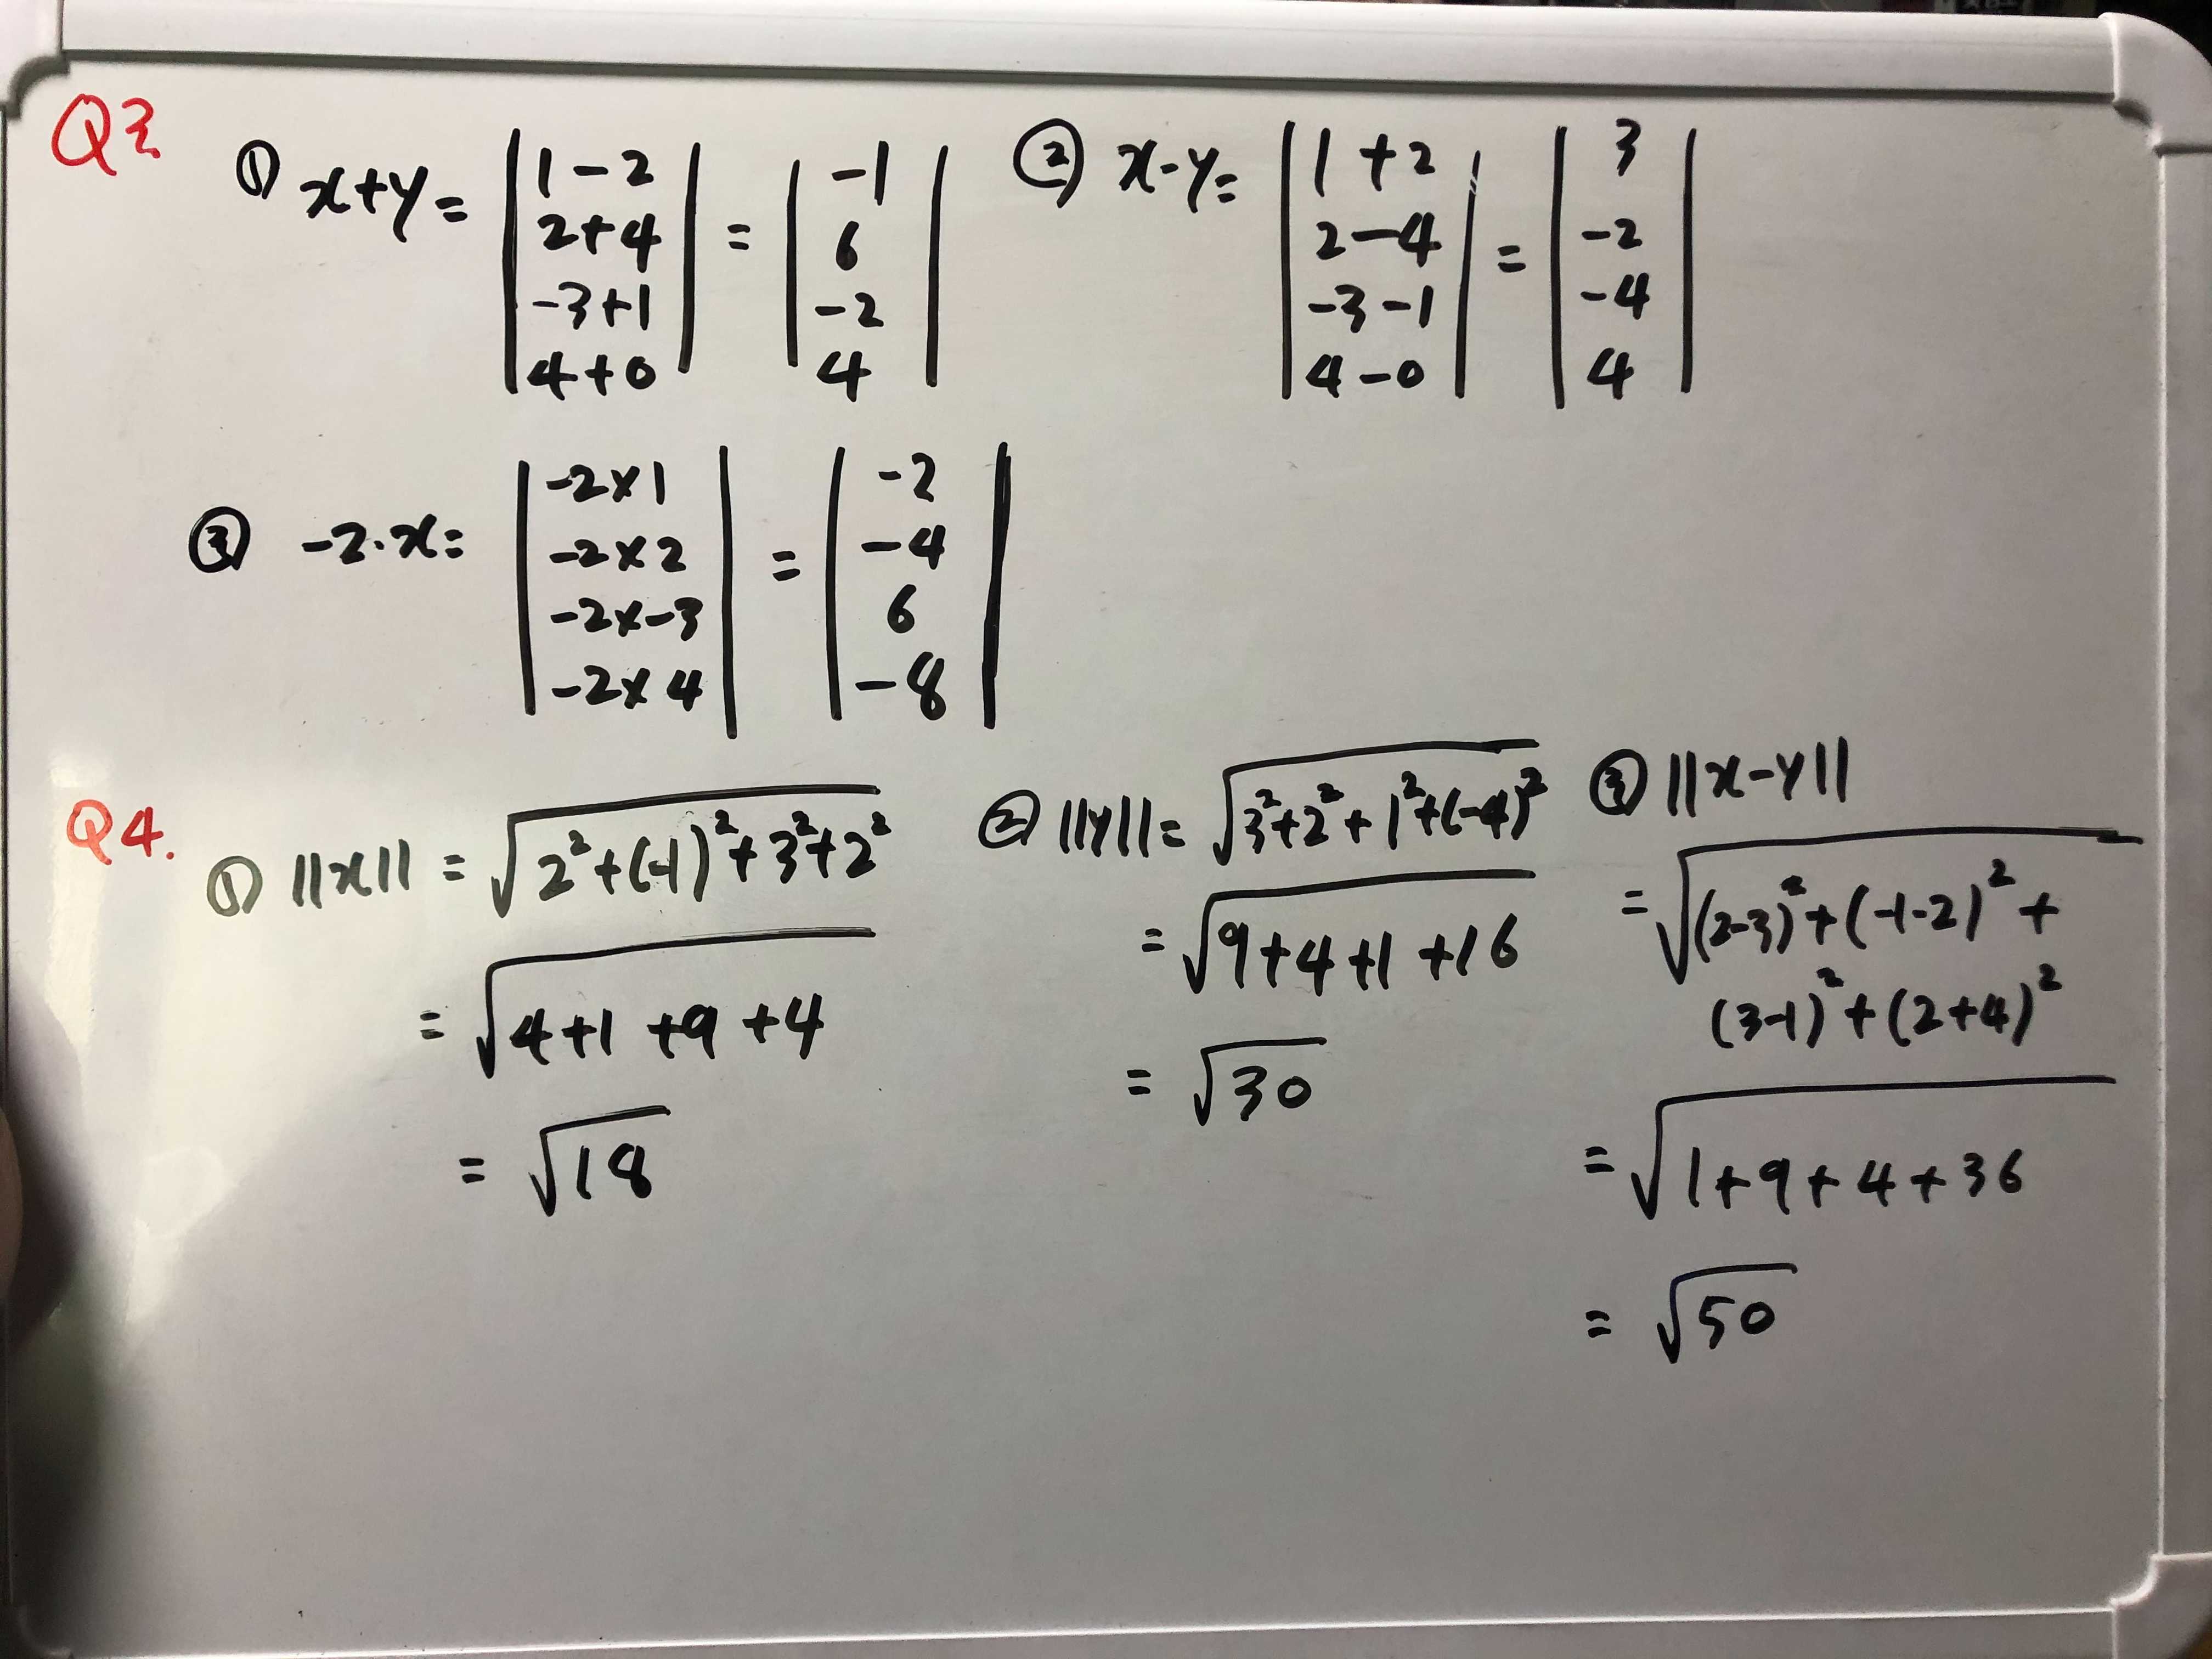 Q3
① x+y= | 1-2 | = | -1 |
| 2+4 | | 6 |
| -3+1 | | -2 |
| 4+0 | | 4 |
② x-y= | 1+2 | = | 3 |
| 2-4 | | -2 |
| -3-1 | | -4 |
| 4-0 | | 4 |
③ -2·x= | -2×1 | = | -2 |
| -2×2 | | -4 |
| -2×-3 | | 6 |
| -2×4 | | -8 |
Q4.
① ||x|| = √(2²+(-1)²+3²+2²)
= √(4+1+9+4)
= √18
② ||y||= √(3²+2²+1²+(-4)²)
= √(9+4+1+16)
= √30
③ ||x-y||
= √((2-3)²+(-1-2)²+
(3-1)²+(2+4)²)
= √(1+9+4+36)
= √50